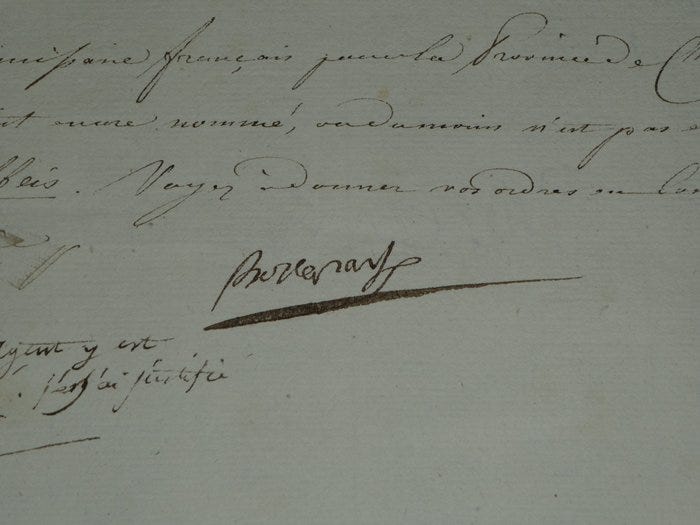 français pour la Province de
encore nommé, ou du moins n'est pas
Beis. Voyez à donner vos ordres en
Bonaparte
agent y est
justifié